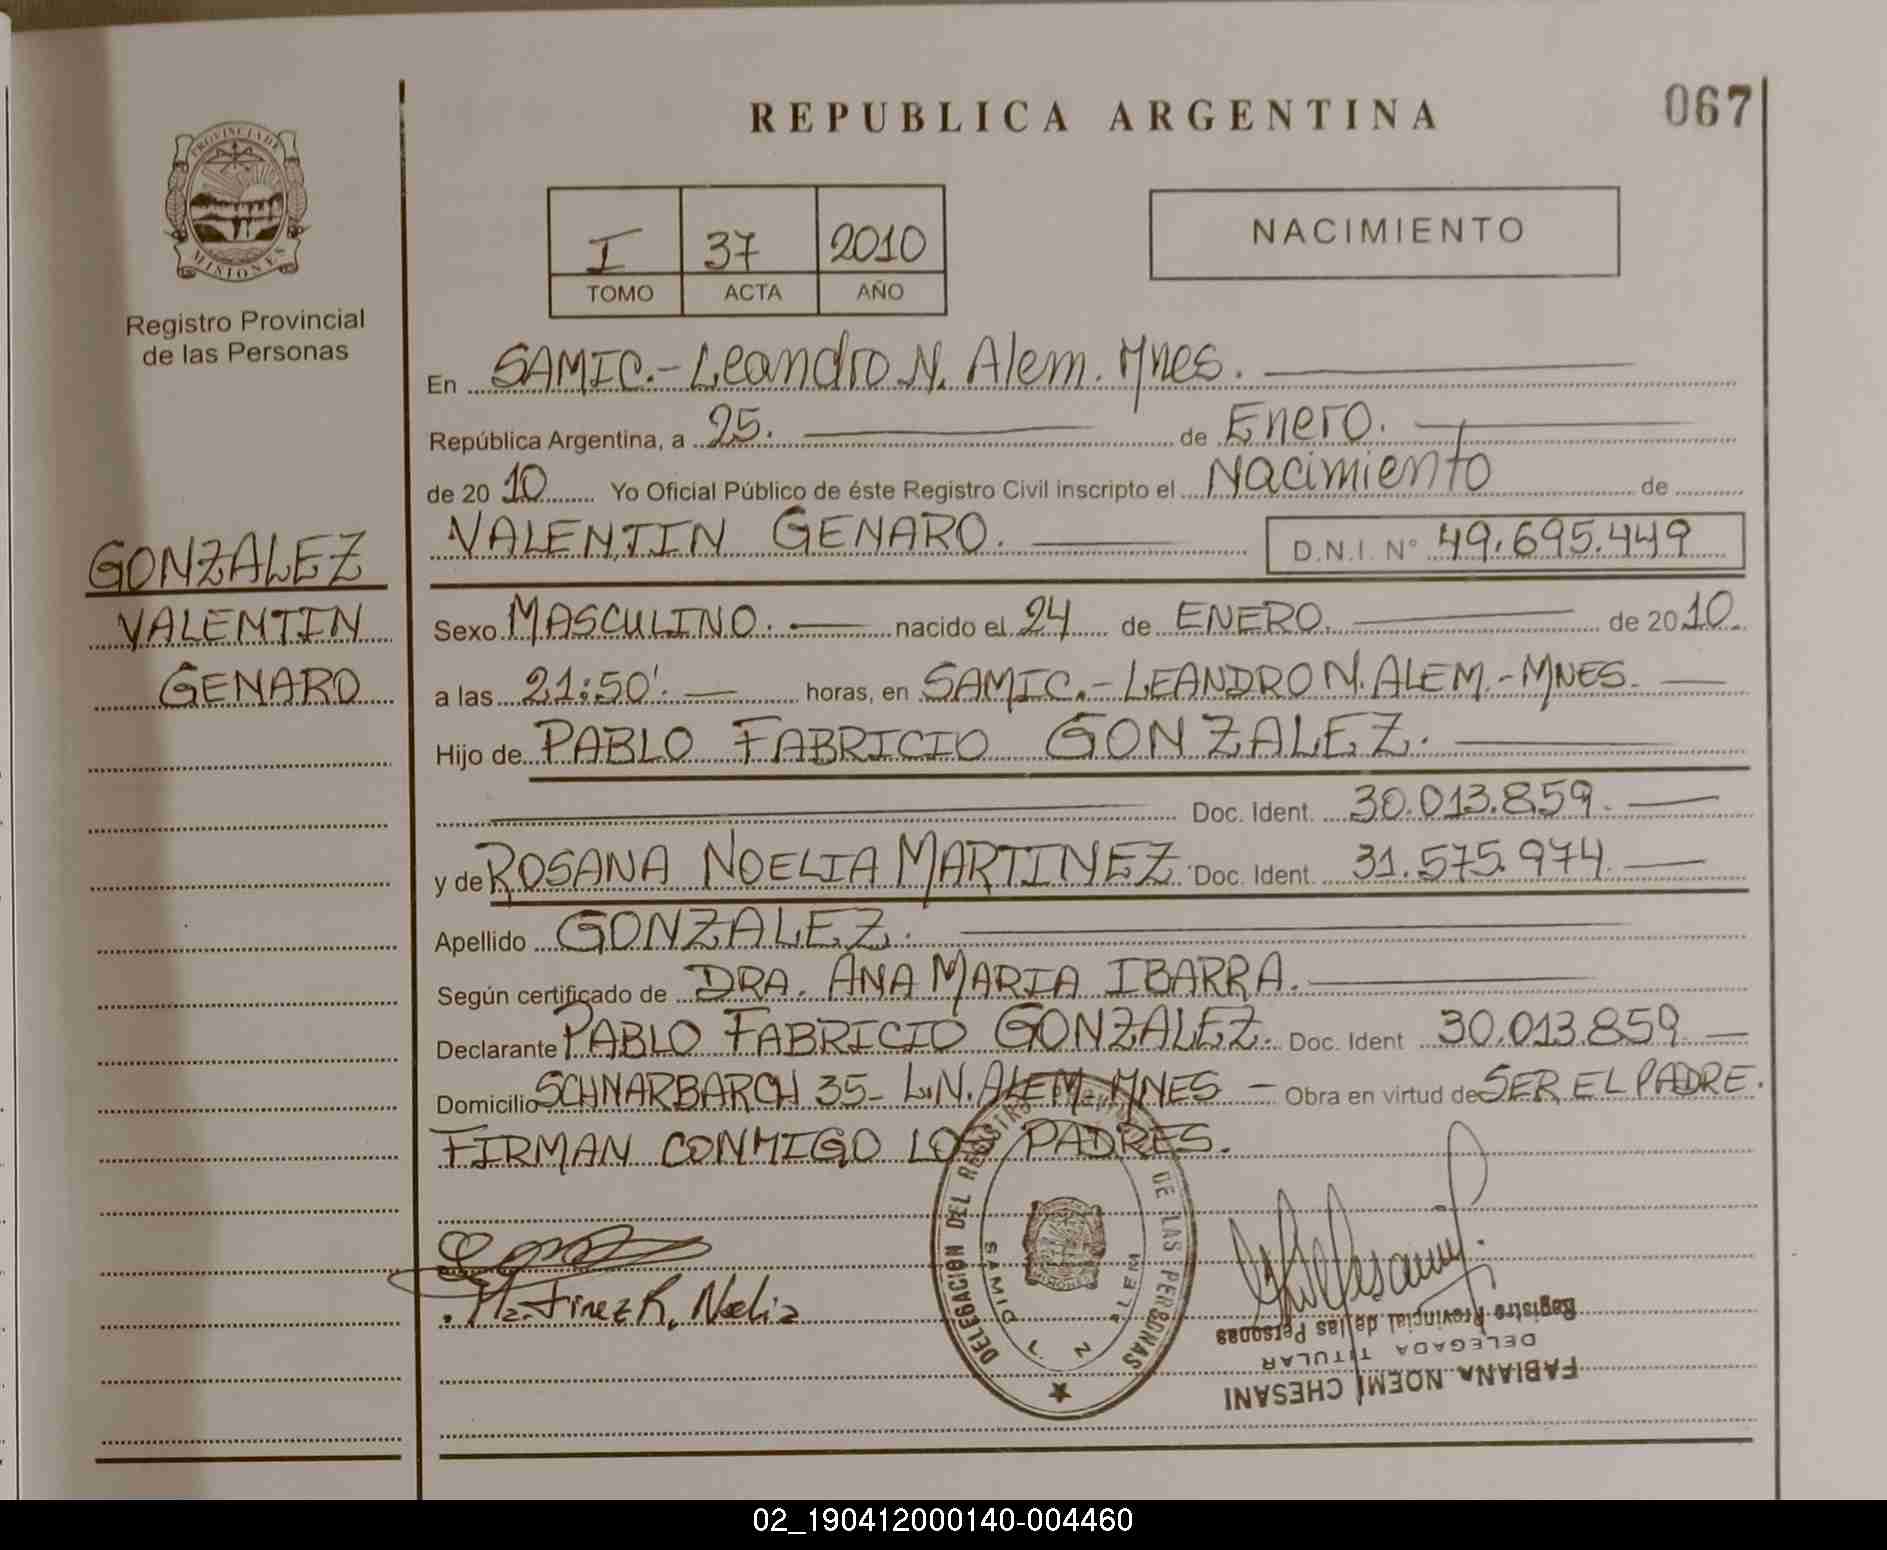 REPUBLICA ARGENTINA
067
PROVINCIA DE
MISIONES
Registro Provincial
de las Personas
I 37 2010
TOMO ACTA AÑO
NACIMIENTO
En SAMIC.- Leandro N. Alem. Mnes.
República Argentina, a 25. de Enero.
de 20 10 Yo Oficial Público de éste Registro Civil inscripto el Nacimiento de
VALENTIN GENARO. D.N.I. N° 49.695.449
GONZALEZ
VALENTIN
GENARO
Sexo MASCULINO. nacido el 24 de ENERO. de 20 10.
a las 21:50'. horas, en SAMIC.- LEANDRO N. ALEM.- MNES.
Hijo de PABLO FABRICIO GONZALEZ.
Doc. Ident. 30.013.859.
y de ROSANA NOELIA MARTINEZ Doc. Ident. 31.575.974.
Apellido GONZALEZ.
Según certificado de DRA. ANA MARIA IBARRA.
Declarante PABLO FABRICIO GONZALEZ. Doc. Ident 30.013.859
Domicilio SCHNARBARCH 35- L.N. ALEM. MNES - Obra en virtud de SER EL PADRE.
FIRMAN CONMIGO LOS PADRES.
Martinez R. Noelia
DELEGACION DEL REGISTRO DE LAS PERSONAS
SAMIC L N ALEM
MISIONES
Registro Provincial de las Personas
DELEGADA TITULAR
FABIANA NOEMI CHESANI
02_190412000140-004460